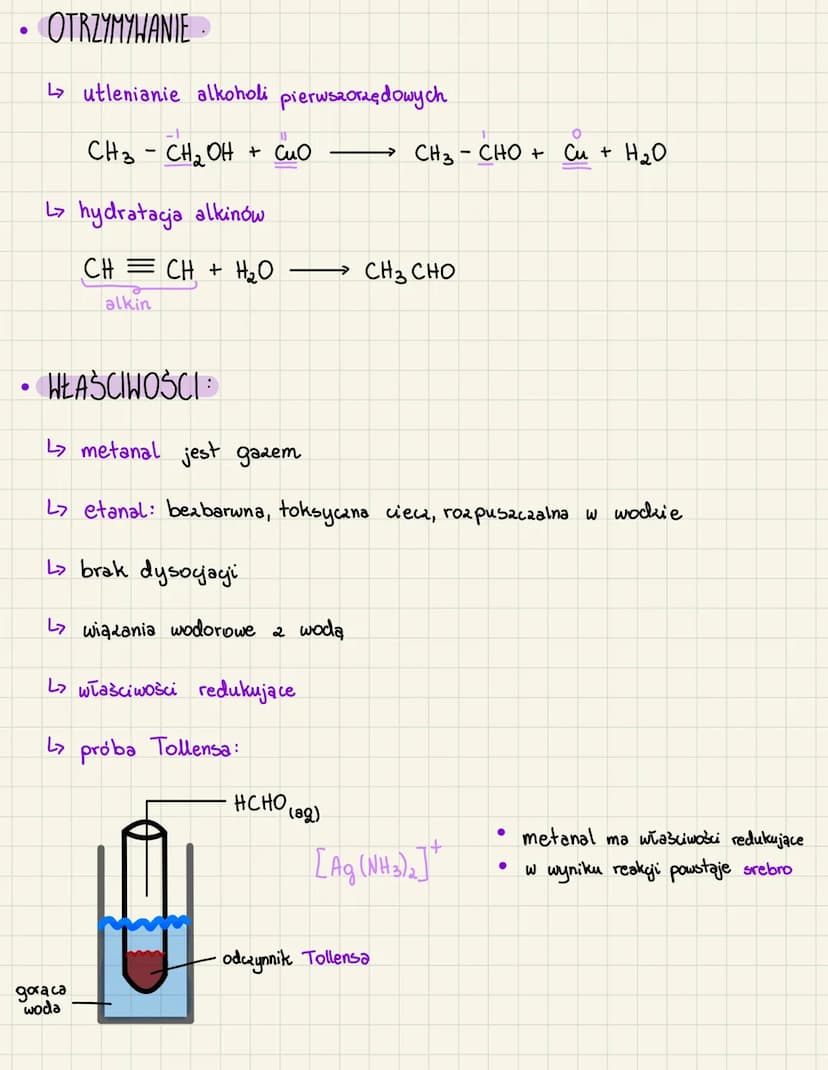 • OTRZYMYWANIE.
↳ utlenianie alkoholi pierwszorzędowych
-I II I 0
CH₃ - CH₂OH + CuO ⟶ CH₃ - CHO + Cu + H₂O
↳ hydratacja alkinów
CH ≡ CH + H₂O ⟶ CH₃CHO
alkin
• WŁAŚCIWOŚCI:
↳ metanal jest gazem
↳ etanal: bezbarwna, toksyczna ciecz, rozpuszczalna w wodzie
↳ brak dysocjacji
↳ wiązania wodorowe z wodą
↳ właściwości redukujące
↳ próba Tollensa:
HCHO(aq)
[Ag(NH₃)₂]⁺
• metanal ma właściwości redukujące
• w wyniku reakcji powstaje srebro
odczynnik Tollensa
gorąca
woda